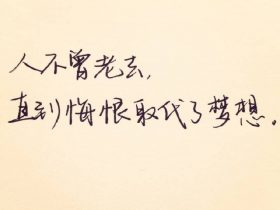 人不曾老去,
直到悔恨取代了梦想。